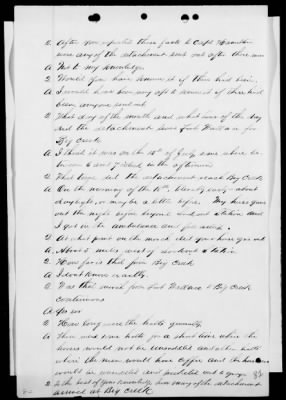 Q After you reported these facts to Capt. Hamilton
were any of the detachment sent out after these men
A Not to my knowledge
Q Would you have known it if they had been,
A I would have been very apt to know it if there had
been anyone sent out
Q What day of the month and what hour of the day
did the detachment leave Fort Wallace for
Big Creek
A I think it was on the 15th of July some where be-
tween 6 and 7 o'clock in the afternoon
Q What time did the detachment reach Big Creek
A On the morning of the 18th, early about
daylight, or may be a little before. My horse gave
out the night before beyond station and
I got in the ambulance and
Q At what point on the march did your horse give out
A About 5 miles west of station
Q How far is that from Big Creek
A I don't know exactly.
Q Was that march from Fort Wallace to Big Creek
continuous
A Yes sir
Q How long were the halts generally
A There were some halts for a short time where the
horses would not be unsaddled and other halts
where the men would have coffee and the horses
would be unsaddled and
Q To the best of your knowledge how many of the detachment
arrived at Big Creek